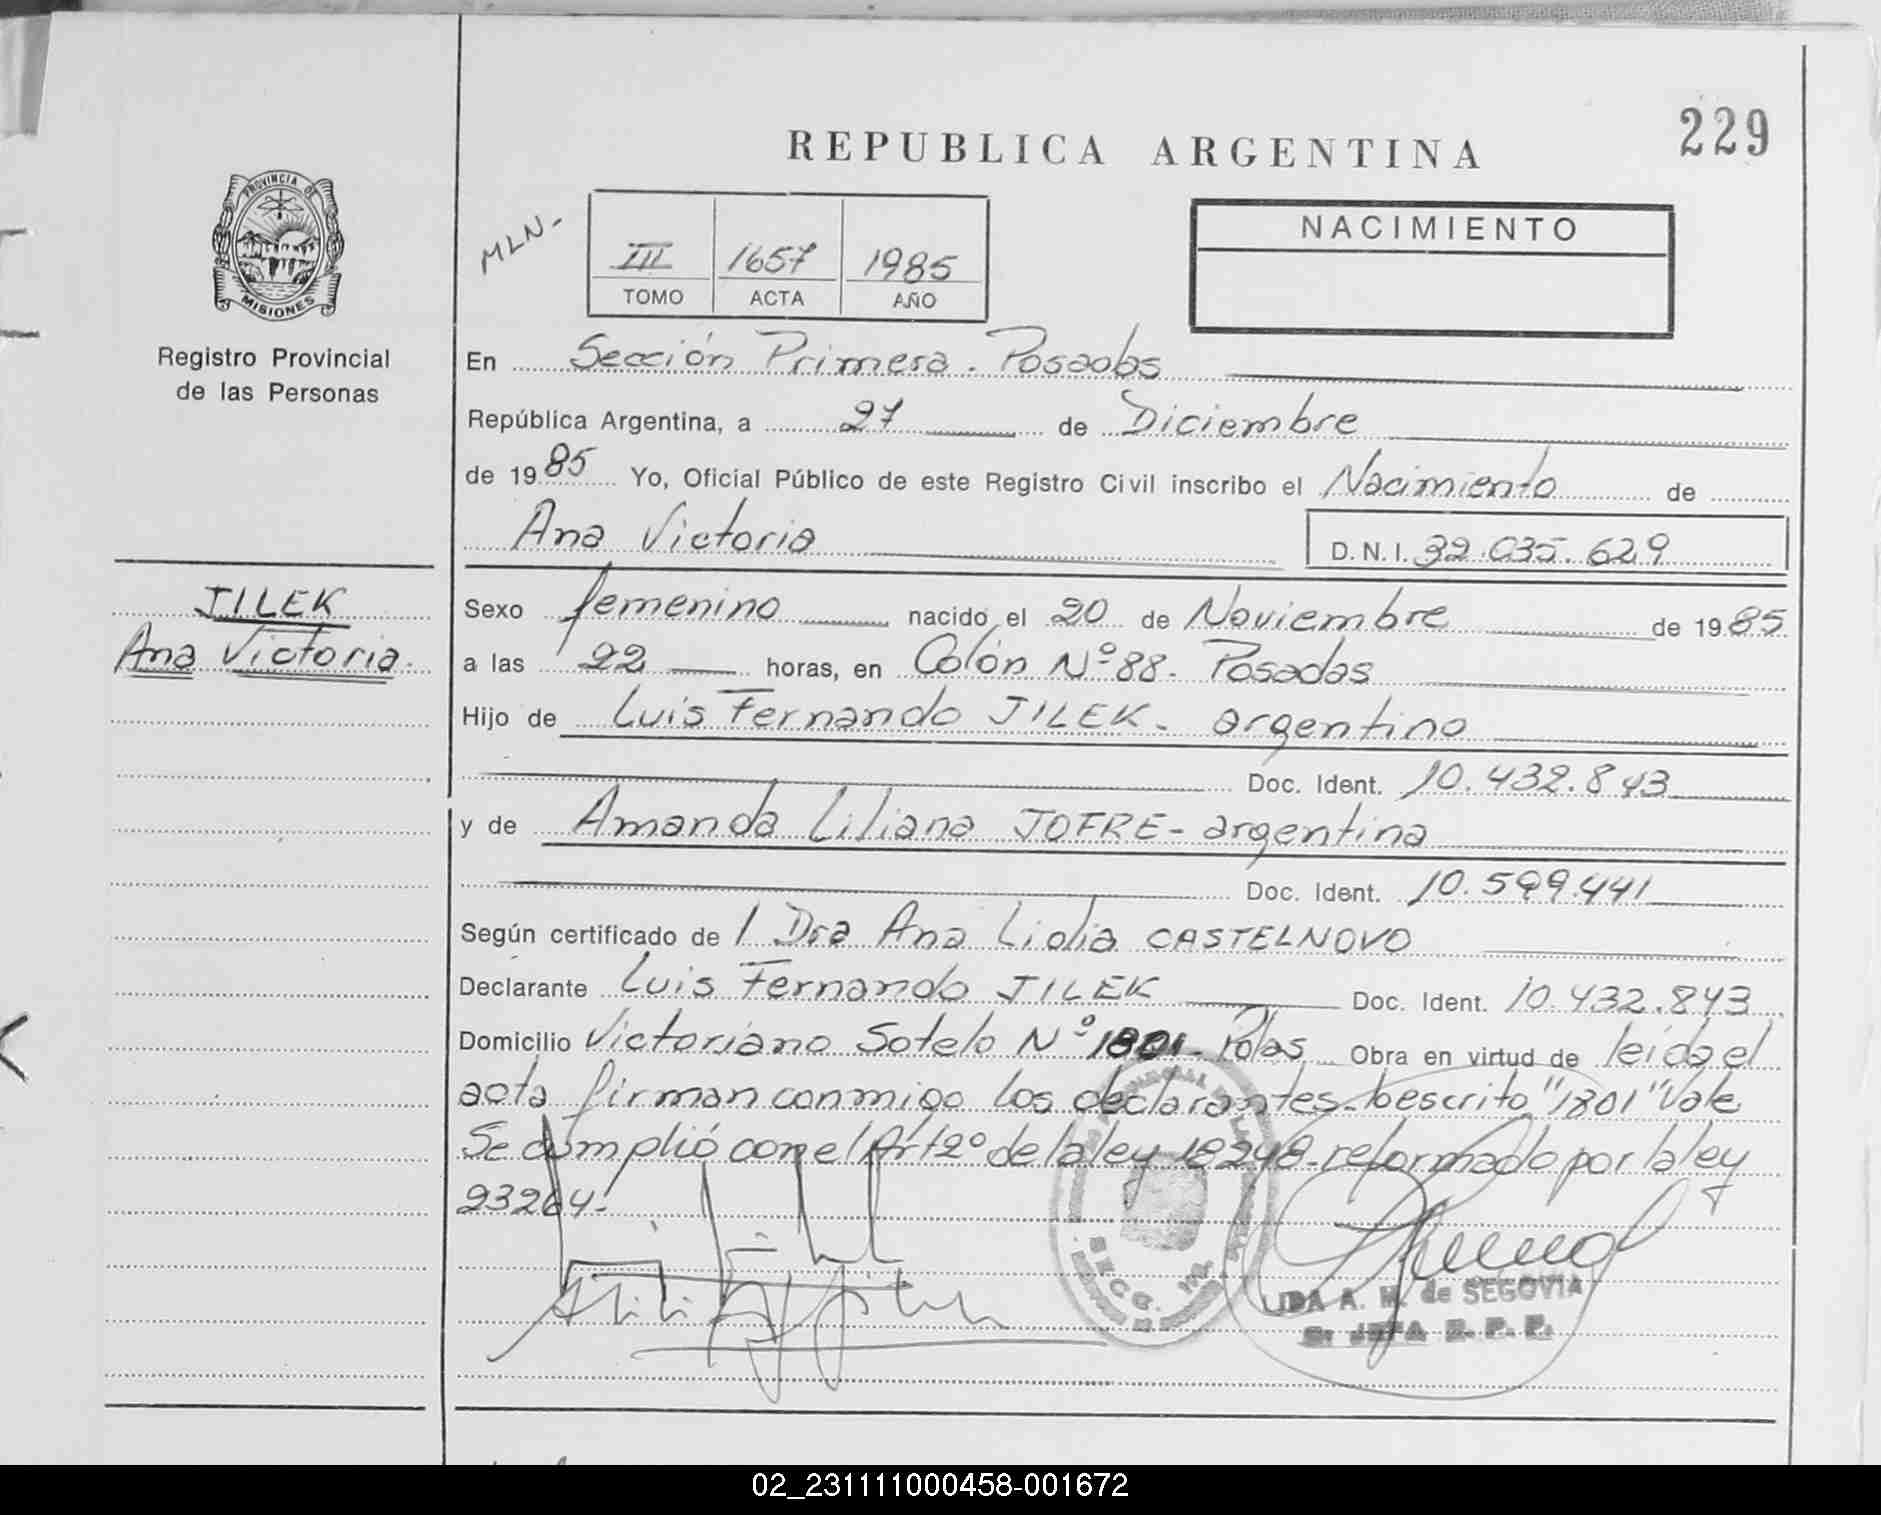 229
REPUBLICA ARGENTINA
PROVINCIA DE
MISIONES
Registro Provincial
de las Personas
MLN-
III 1657 1985
TOMO ACTA AÑO
NACIMIENTO
En Sección Primera. Posadas
República Argentina, a 27 de Diciembre
de 1985 Yo, Oficial Público de este Registro Civil inscribo el Nacimiento de
Ana Victoria D.N.I. 32.035.629
JILEK
Ana Victoria.
Sexo femenino nacido el 20 de Noviembre de 1985
a las 22 horas, en Colón Nº 88. Posadas
Hijo de Luis Fernando JILEK. argentino
Doc. Ident. 10.432.843
y de Amanda Liliana JOFRE- argentina
Doc. Ident. 10.599.441
Según certificado de / Dra Ana Lidia CASTELNOVO
Declarante Luis Fernando JILEK Doc. Ident. 10.432.843
Domicilio Victoriano Sotelo Nº 1801. Pdas Obra en virtud de leida el
acta firman conmigo los declarantes. Sobescrito "1801" Vale
Se cumplió con el Art 2º de la ley 18248. reformado por la ley
23264.
A. M. de SEGOVIA
02_231111000458-001672